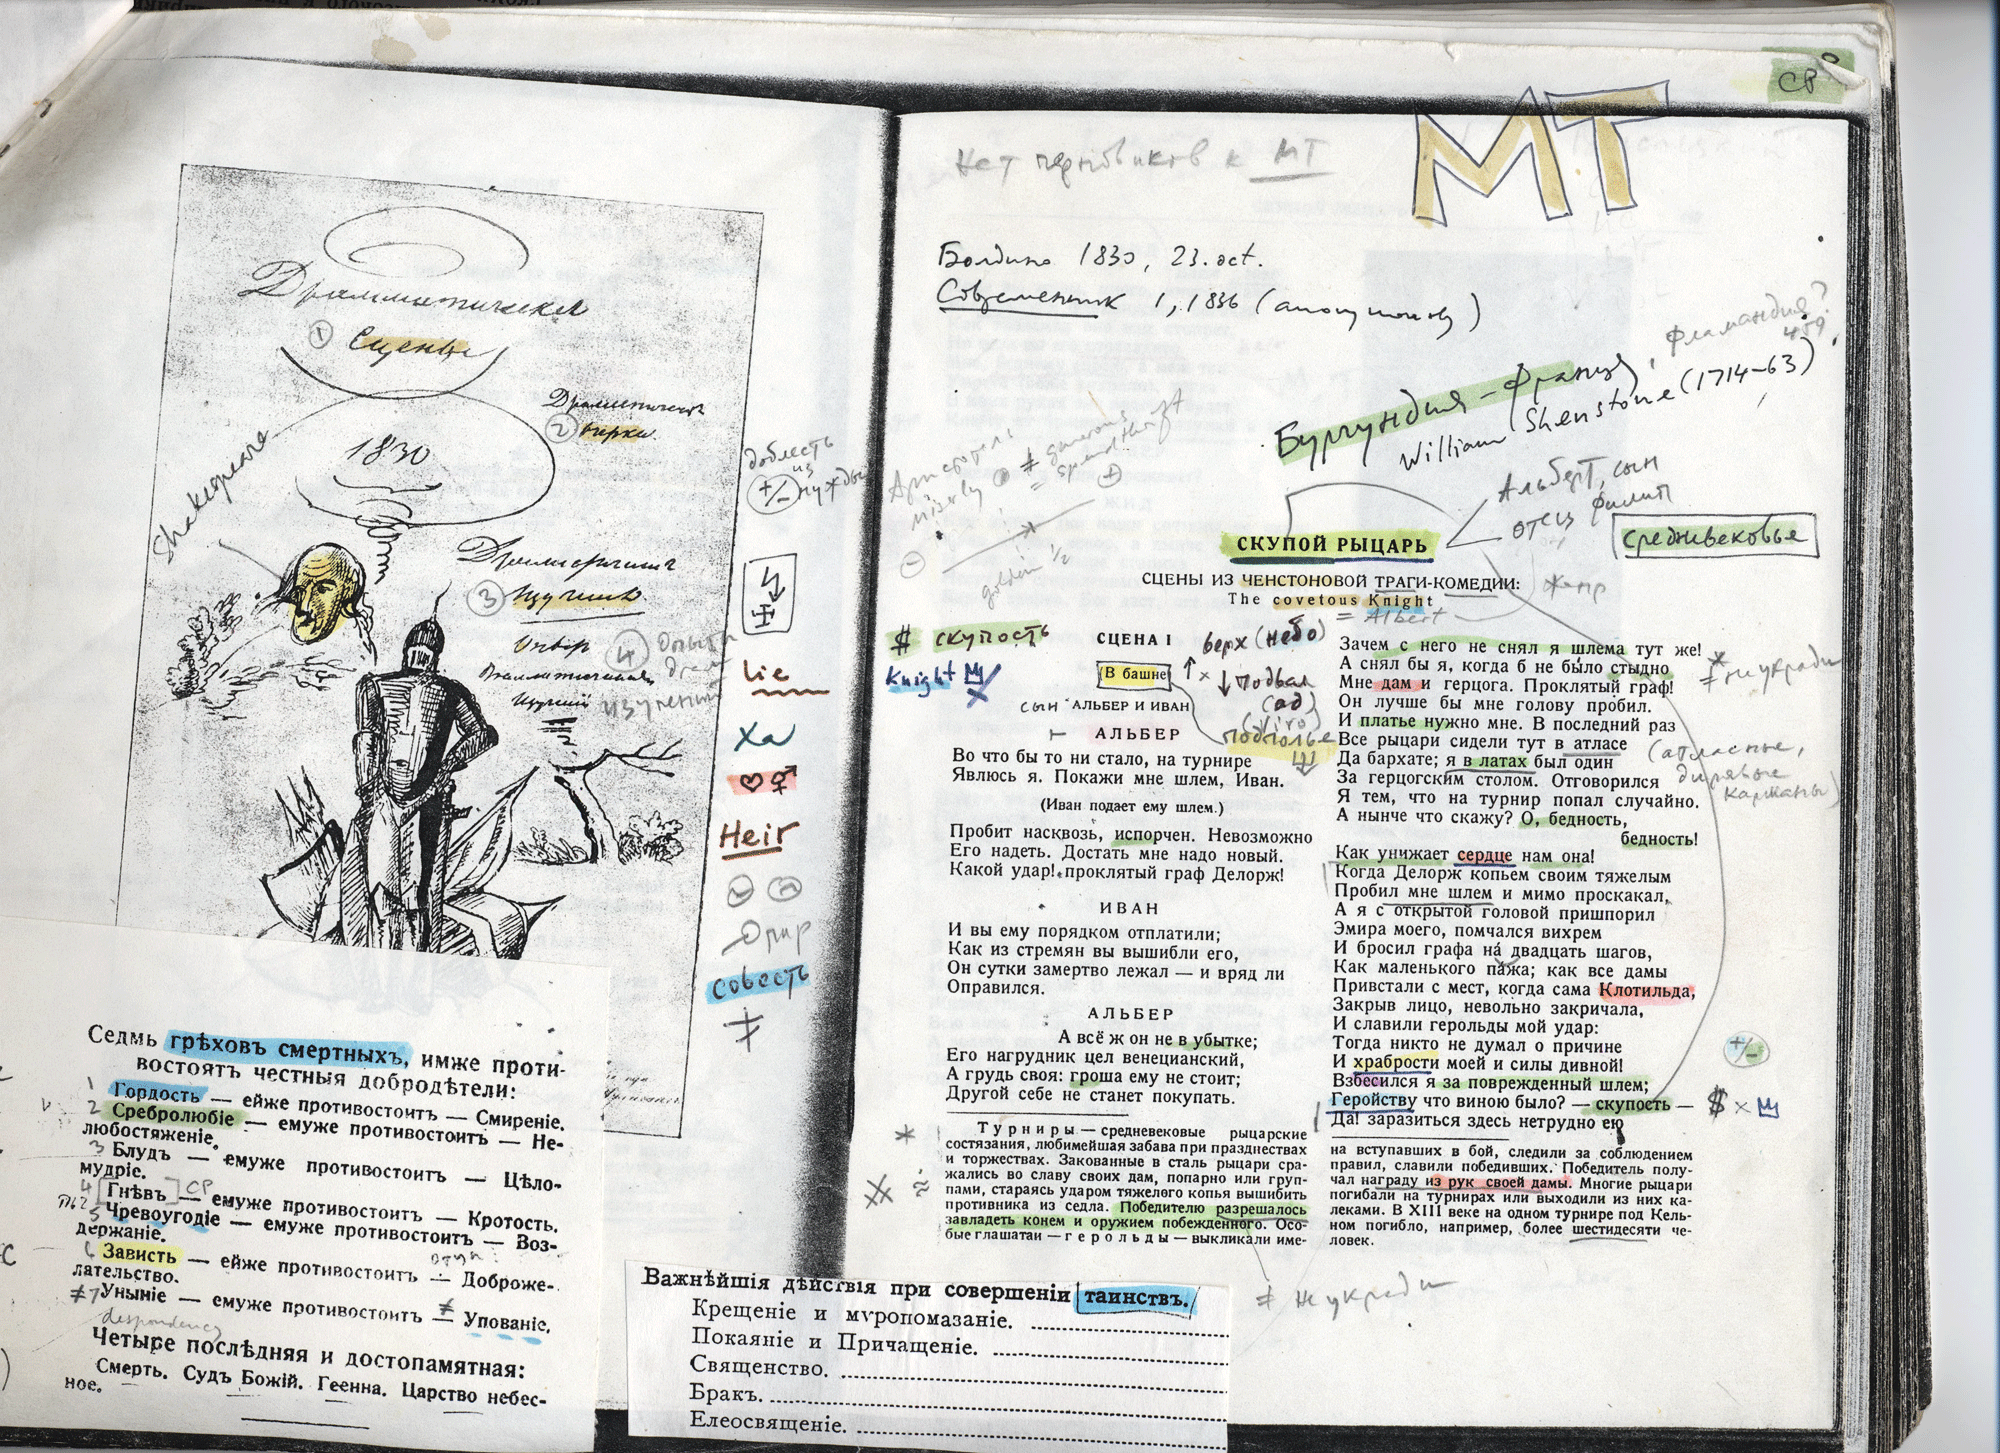 СР
МТ
Нет черновиков к МТ
Болдино 1830, 23. oct.
Современник 1, 1836 (анонимно)
Фламандия?
Бургундия – Франция,
William Shenstone (1714–63)
Альберт, сын
отец Филип
средневековье
Драмматическия
1 Сцены
Драмматическ
2 очерки
1830
Shakespeare
3
4 Опыт
драм
изучений
доблесть
+/- из
нужды
Lie
Ха
Heir
совесть
≠
Аристотель
miserly ≠ generous
= spendthrift
golden 1/2
СКУПОЙ РЫЦАРЬ
СЦЕНЫ ИЗ ЧЕНСТОНОВОЙ ТРАГИ-КОМЕДИИ: жанр
The covetous Knight
= Albert
$ скупость
Knight
СЦЕНА I
верх (небо)
В башне
↓ подвал
(ад)
подполье
сын АЛЬБЕР И ИВАН
АЛЬБЕР
Во что бы то ни стало, на турнире
Явлюсь я. Покажи мне шлем, Иван.
(Иван подает ему шлем.)
Пробит насквозь, испорчен. Невозможно
Его надеть. Достать мне надо новый.
Какой удар! проклятый граф Делорж!
ИВАН
И вы ему порядком отплатили;
Как из стремян вы вышибли его,
Он сутки замертво лежал — и вряд ли
Оправился.
АЛЬБЕР
А всё ж он не в убытке;
Его нагрудник цел венецианский,
А грудь своя: гроша ему не стоит;
Другой себе не станет покупать.
Турниры — средневековые рыцарские
состязания, любимейшая забава при празднествах
и торжествах. Закованные в сталь рыцари сра-
жались во славу своих дам, попарно или груп-
пами, стараясь ударом тяжелого копья вышибить
противника из седла. Победителю разрешалось
завладеть конем и оружием побежденного. Осо-
бые глашатаи — герольды — выкликали име-
Зачем с него не снял я шлема тут же!
А снял бы я, когда б не было стыдно
Мне дам и герцога. Проклятый граф!
Он лучше бы мне голову пробил.
И платье нужно мне. В последний раз
Все рыцари сидели тут в атласе
Да бархате; я в латах был один
За герцогским столом. Отговорился
Я тем, что на турнир попал случайно.
А нынче что скажу? О, бедность,
бедность!
Как унижает сердце нам она!
Когда Делорж копьем своим тяжелым
Пробил мне шлем и мимо проскакал,
А я с открытой головой пришпорил
Эмира моего, помчался вихрем
И бросил графа на двадцать шагов,
Как маленького пажа; как все дамы
Привстали с мест, когда сама Клотильда,
Закрыв лицо, невольно закричала,
И славили герольды мой удар:
Тогда никто не думал о причине
И храбрости моей и силы дивной!
Взбесился я за поврежденный шлем;
Геройству что виною было? — скупость —
Да! заразиться здесь нетрудно ею
на вступавших в бой, следили за соблюдением
правил, славили победивших. Победитель полу-
чал награду из рук своей дамы. Многие рыцари
погибали на турнирах или выходили из них ка-
леками. В XIII веке на одном турнире под Кель-
ном погибло, например, более шестидесяти че-
ловек.
≠ не укради
(атласные,
дырявые
карманы)
+/-
$ ×
≠ не укради
Седмь грѣховъ смертныхъ, имже проти-
востоятъ честныя добродѣтели:
1 Гордость — ейже противостоитъ — Смиреніе.
2 Сребролюбіе — емуже противостоитъ — Не-
любостяженіе.
3 Блудъ — емуже противостоитъ — Цѣло-
мудріе.
4 [Гнѣвъ] СР — емуже противостоитъ — Кротость.
5 Чревоугодіе — емуже противостоитъ — Воз-
держаніе.
6 Зависть — ейже противостоитъ — Доброже-
лательство.
≠7 Уныніе — емуже противостоитъ — Упованіе.
despondency
Четыре послѣдняя и достопамятная:
Смерть. Судъ Божій. Геенна. Царство небес-
ное.
Важнѣйшія дѣйствія при совершеніи таинствъ.
Крещеніе и мѵропомазаніе.
Покаяніе и Причащеніе.
Священство.
Бракъ.
Елеосвященіе.